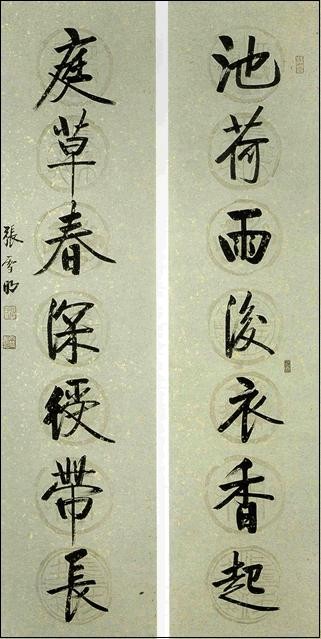 池荷雨後衣香起
庭草春深綬帶長
張雪明